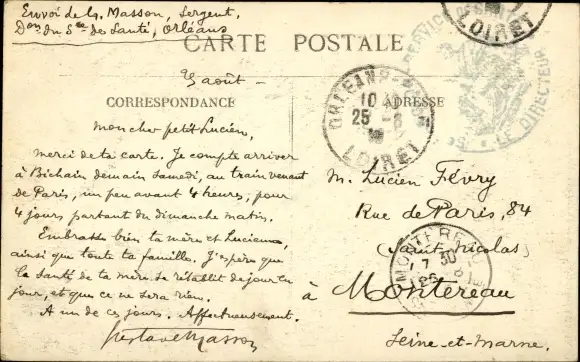 Envoi de G. Masson, Sergent,
Don du Sce de Santé, Orléans
CARTE POSTALE
LOIRET
SERVICE DE SANTÉ
LE DIRECTEUR
25 août -
CORRESPONDANCE
ADRESSE
ORLEANS
10
25 - 8
LOIRET
Mon cher petit Lucien,
Merci de ta carte. Je compte arriver
à Bichain demain samedi, au train venant
de Paris, un peu avant 4 heures, pour
4 jours partant du dimanche matin.
Embrasse bien ta mère et Lucienne,
ainsi que toute ta famille. J'espère que
la santé de ta mère se rétablit de jour en
jour, et que ce ne sera rien.
A un de ces jours. Affectueusement.
Gustave Masson
M. Lucien Févry
Rue de Paris, 84
(Saint-Nicolas)
à Montereau
Seine-et-Marne.
MONTEREAU
17 30
26 - 8